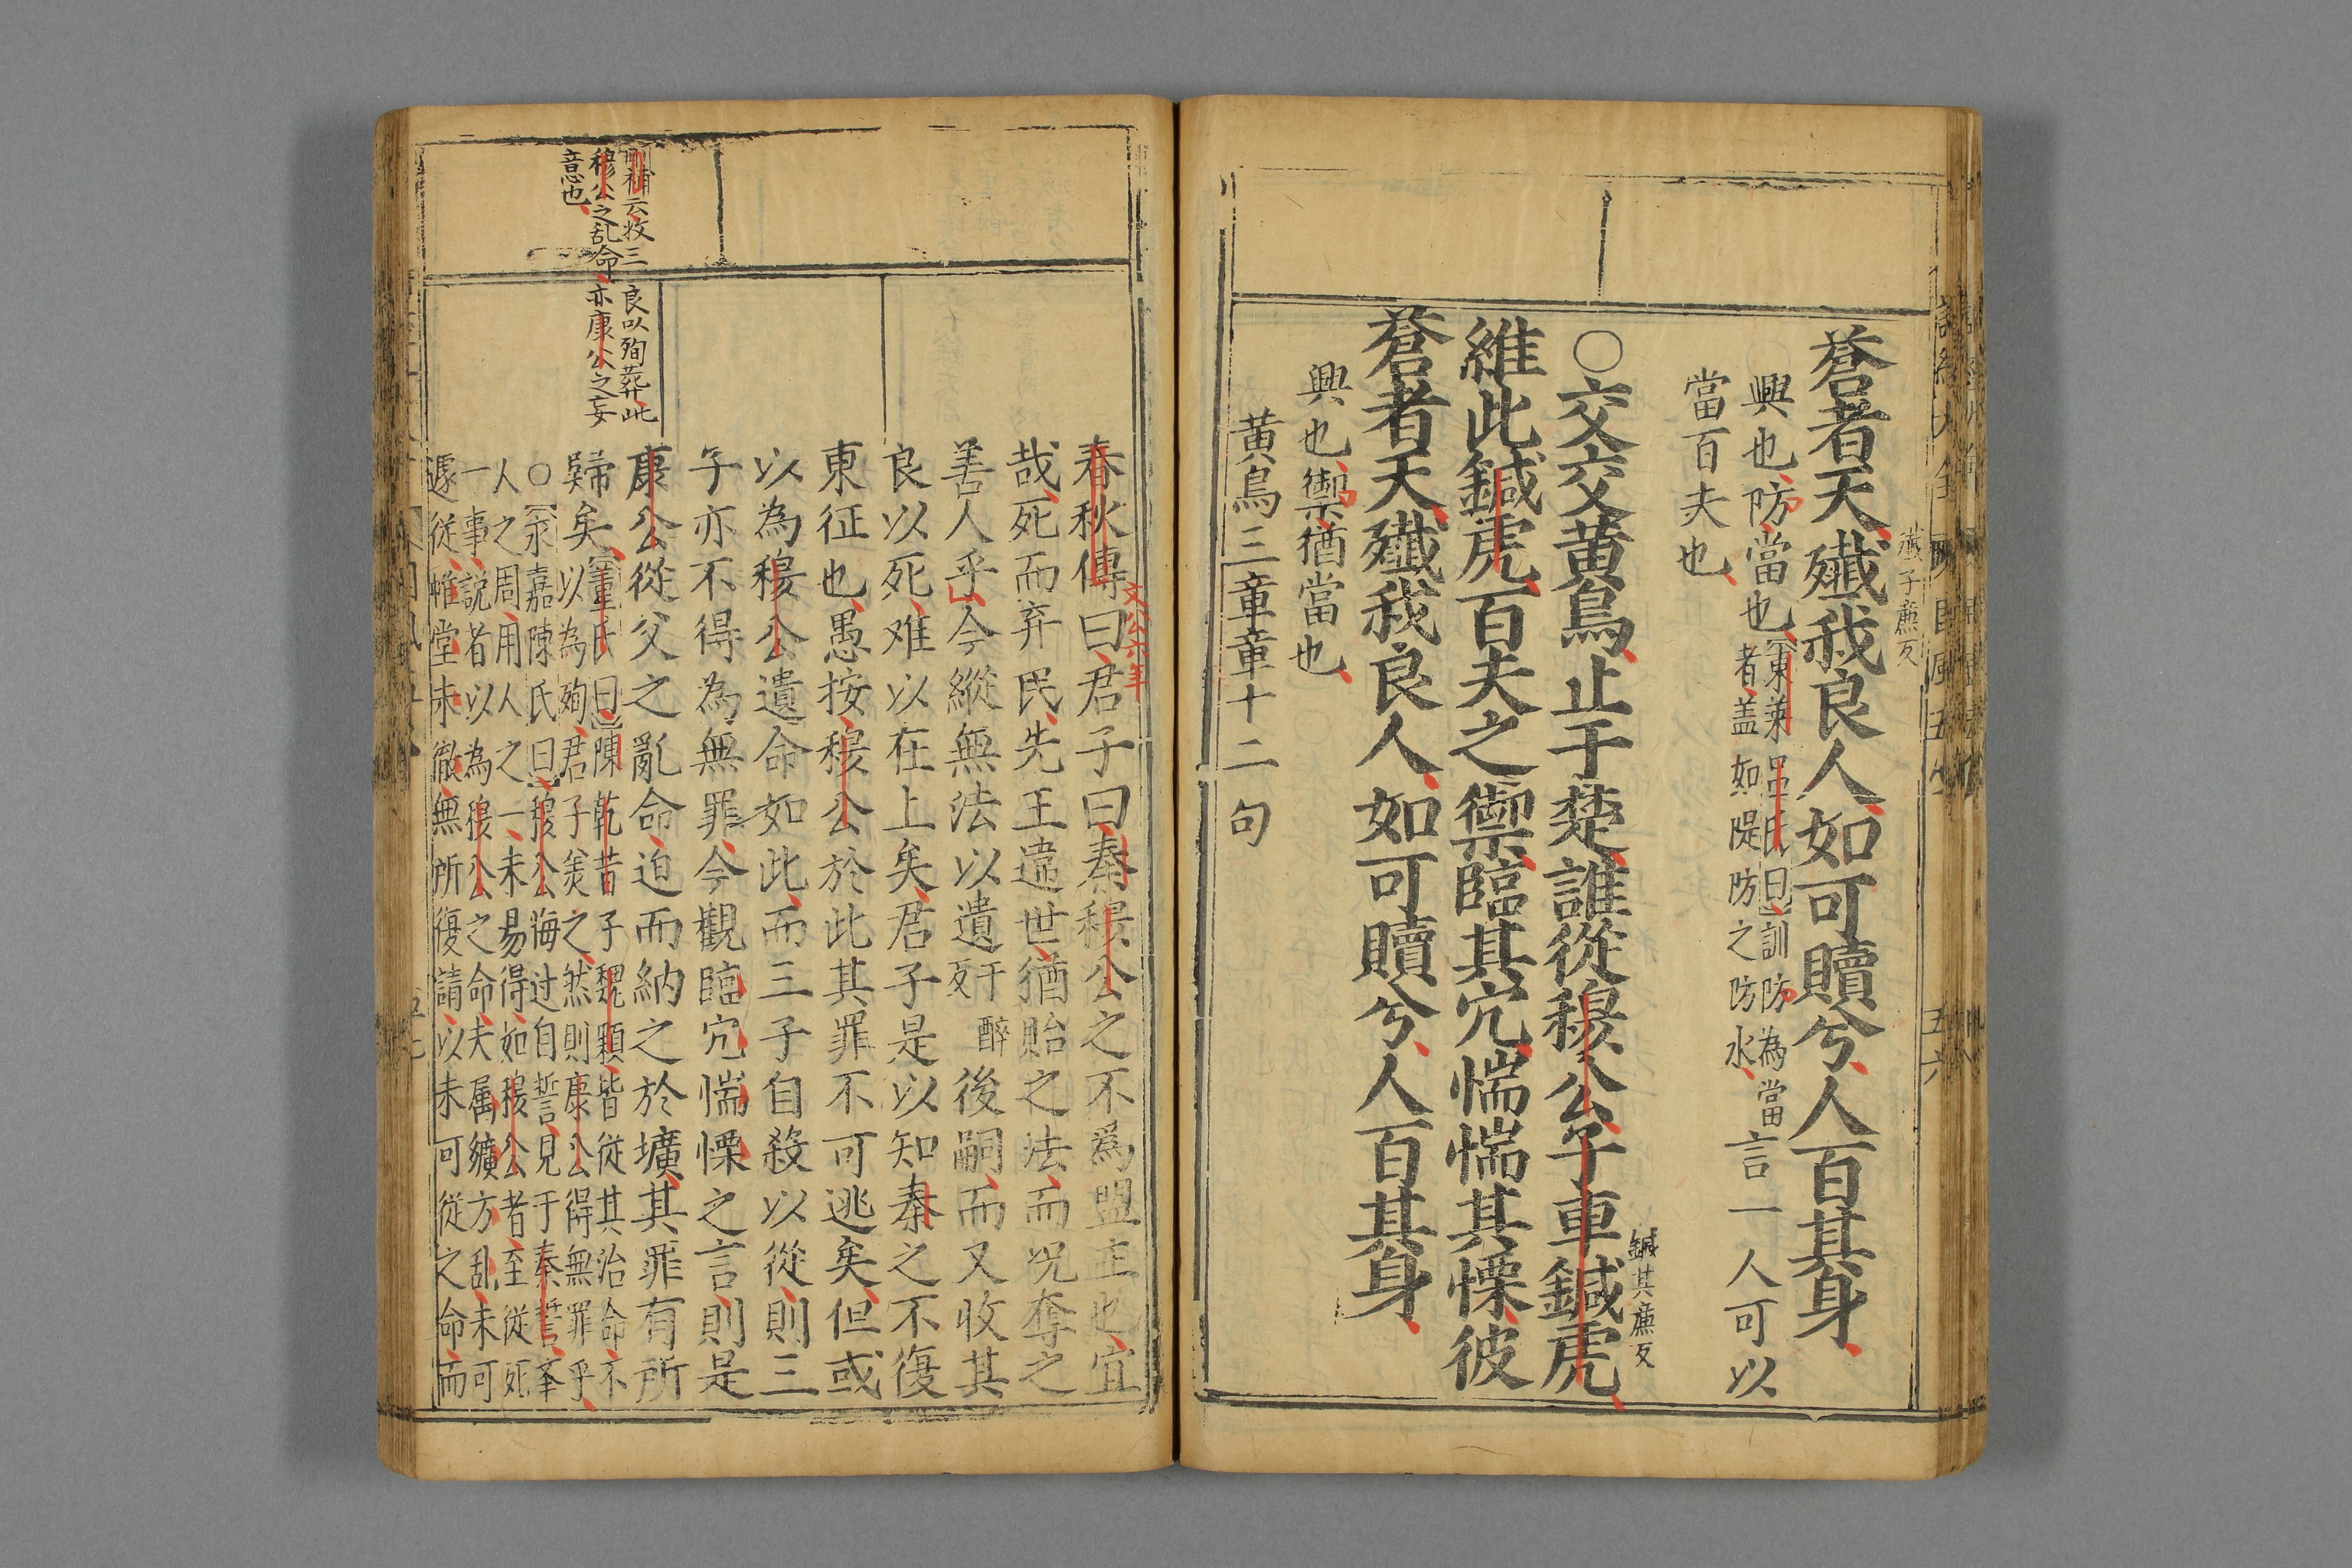 殲子廉反
蒼者天殲我良人如可贖兮人百其身
興也防當也東萊呂氏曰訓防為當者盖如隄防之防水言一人可以
當百夫也
鍼其廉反
○交交黄鳥止于楚誰從穆公子車鍼虎
維此鍼虎百夫之禦臨其穴惴惴其慄彼
蒼者天殲我良人如可贖兮人百其身
興也禦猶當也
黄鳥三章章十二句
文公六年
春秋傳曰君子曰秦穆公之不爲盟主也宜
哉死而弃民先王違世猶貽之法而况奪之
善人乎今縱無法以遺干醉反後嗣而又收其
良以死难以在上矣君子是以知秦之不復
東征也愚按穆公於此其罪不可逃矣但或
以為穆公遺命如此而三子自殺以從則三
子亦不得為無罪今觀臨穴惴慄之言則是
康公從父之亂命迫而納之於壙其罪有所
補云收三良以殉葬此
穆公之乱命亦康公之妄
意也
歸矣董氏曰陳乾昔子魏顆皆從其治命不
以為殉君子美之然則康公得無罪乎
○永嘉陳氏曰穆公悔过自誓見于秦誓峯
人之周用人之一未易得如穆公者至從死
一事説者以為穆公之命夫属纊方乱未可
遽從惟堂未徹無所復請以未可從之命而